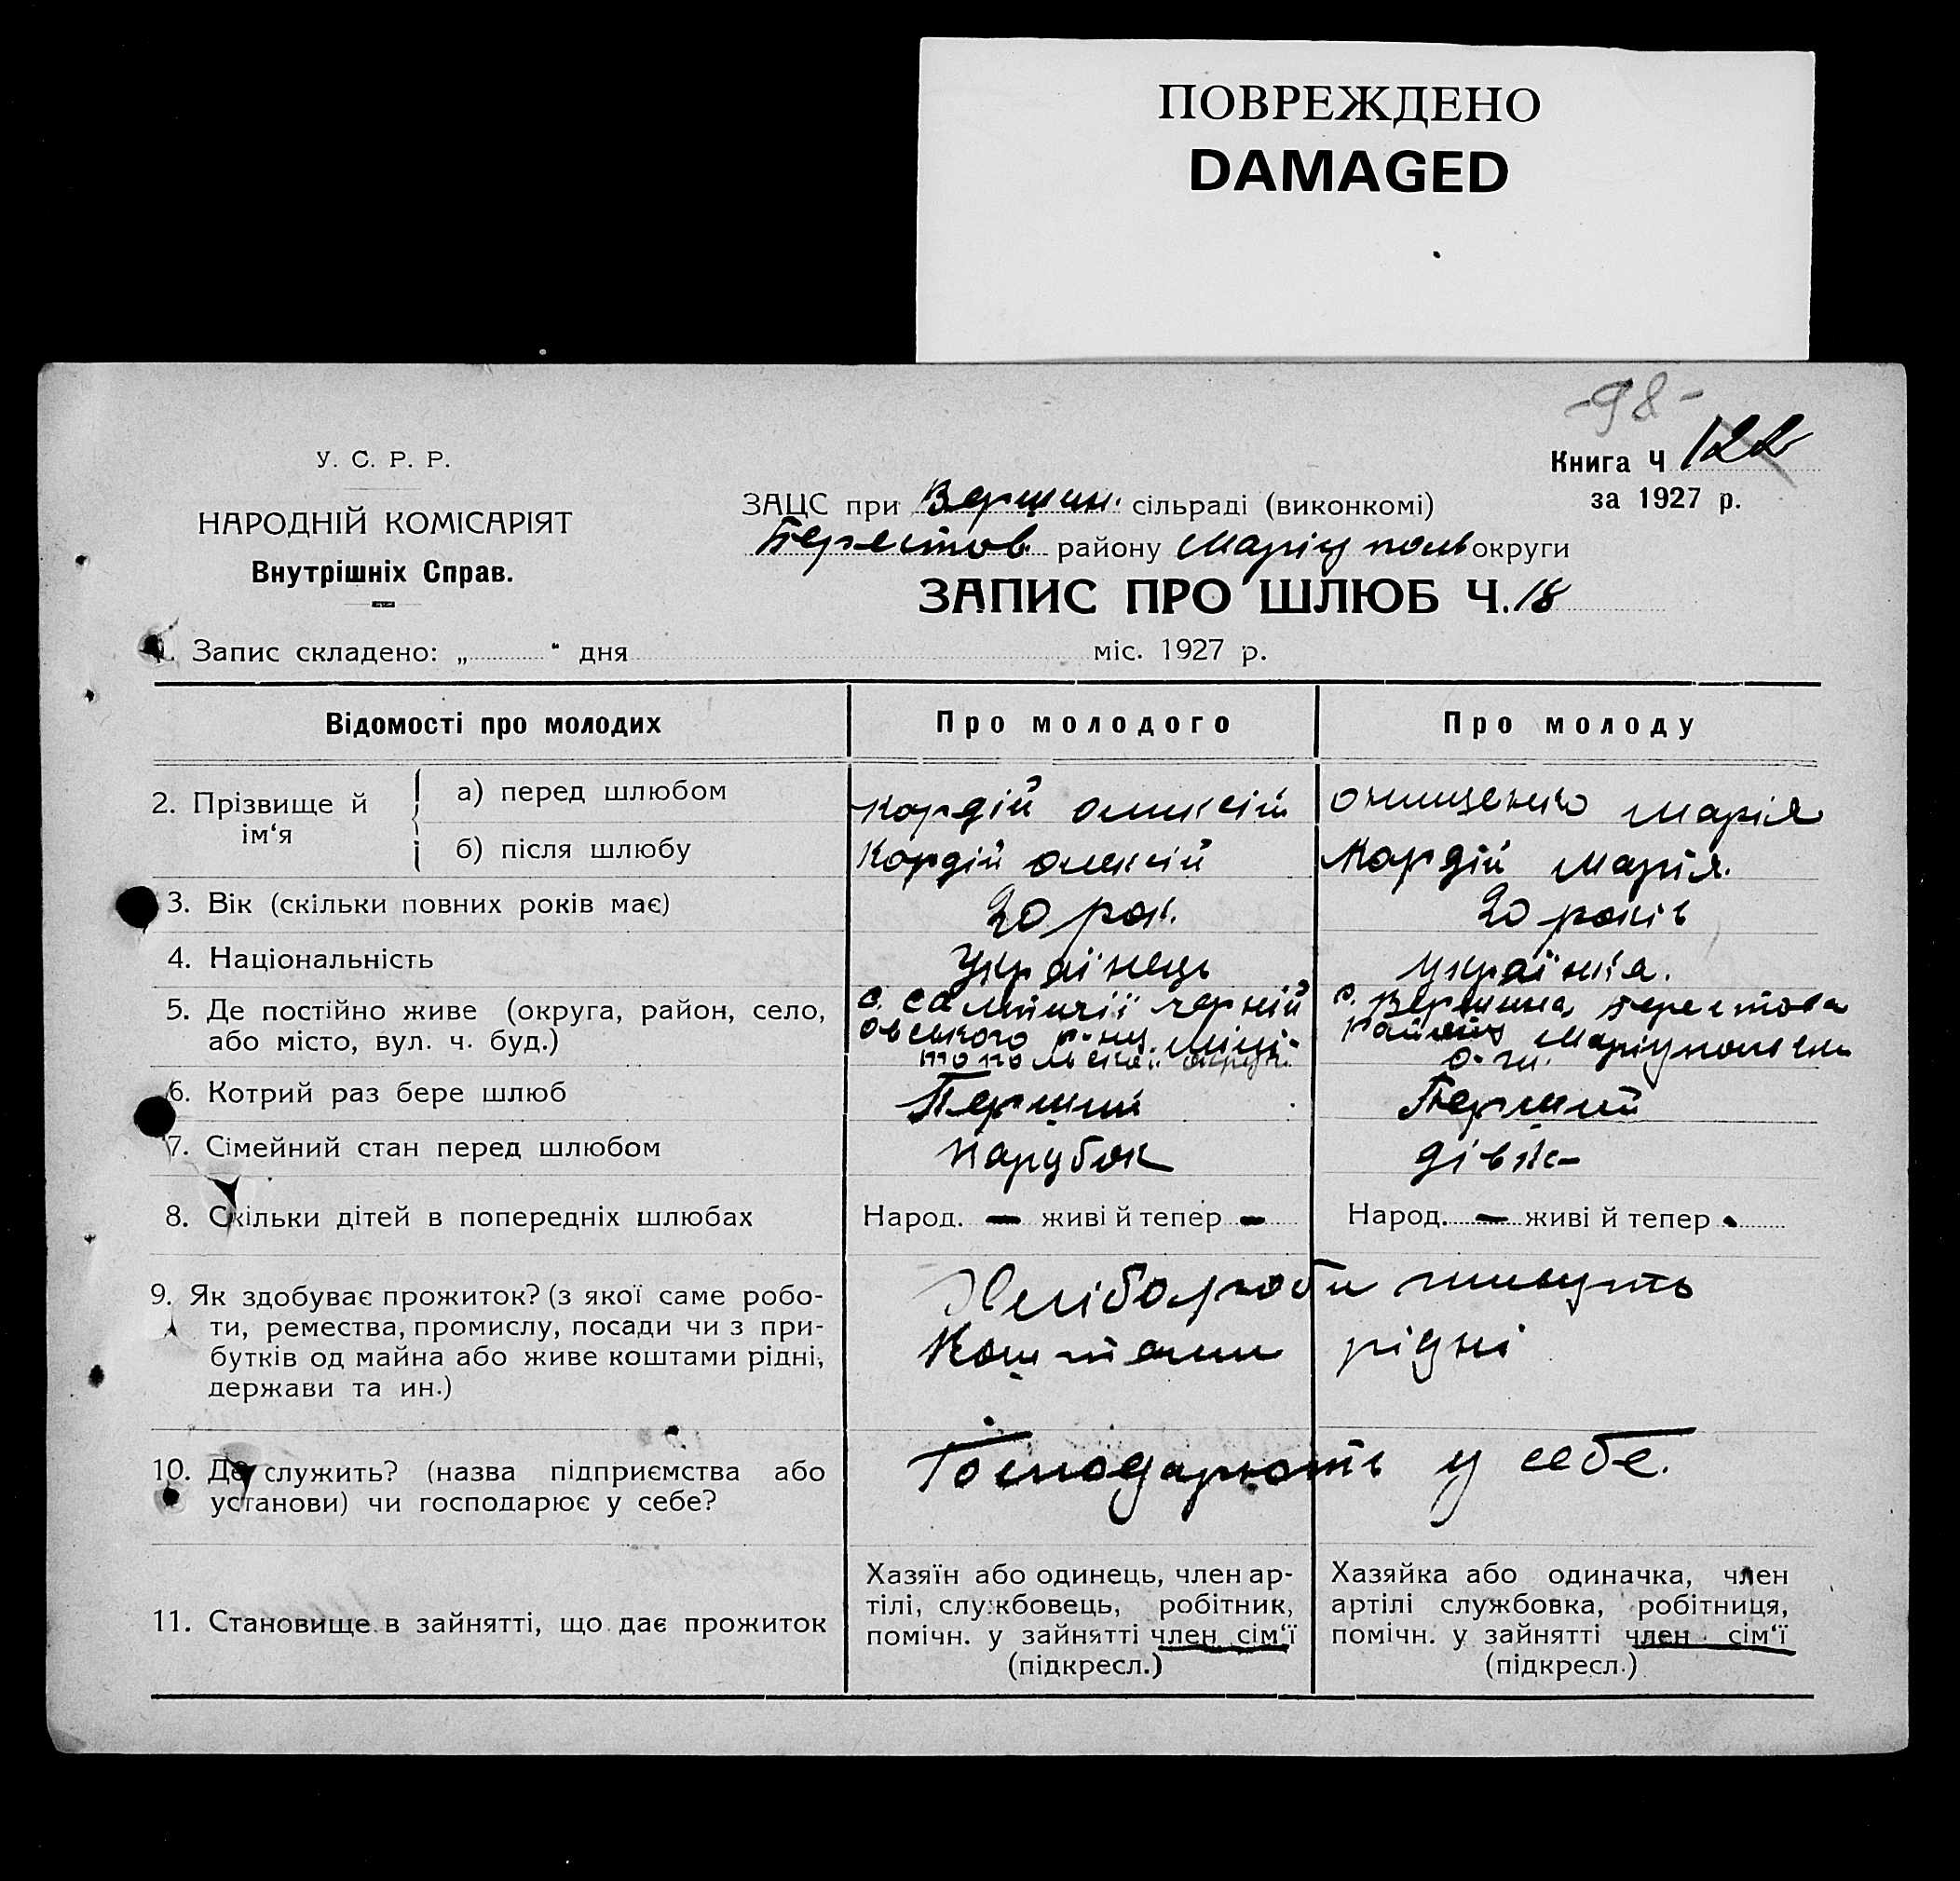 ПОВРЕЖДЕНО
DAMAGED
-98-
У. С. Р. Р.
НАРОДНІЙ КОМІСАРІЯТ
Внутрішніх Справ.
Книга Ч 122
за 1927 р.
ЗАЦС при Вершин. сільраді (виконкомі)
Берестов. району Маріуполь округи
ЗАПИС ПРО ШЛЮБ Ч. 18
1. Запис складено: „ “ дня міс. 1927 р.
Відомості про молодих
Про молодого
Про молоду
2. Прізвище й ім‘я
а) перед шлюбом
Кордій Олексій
Онищенко Марія
б) після шлюбу
Кордій Олексій
Кордій Марія.
3. Вік (скільки повних років має)
20 рок.
20 років
4. Національність
Українець
Українка.
5. Де постійно живе (округа, район, село,
або місто, вул. ч. буд.)
с.
овського р-ну
округи
с. Вершина, Берестова
Маріупольськ
6. Котрий раз бере шлюб
Перший
Перший
7. Сімейний стан перед шлюбом
Парубок
дівка
8. Скільки дітей в попередніх шлюбах
Народ. — живі й тепер —
Народ. — живі й тепер -
9. Як здобуває прожиток? (з якої саме робо-
ти, ремества, промислу, посади чи з при-
бутків од майна або живе коштами рідні,
держави та ин.)
Хліборóби живуть
Коштами рідні
10. Де служить? (назва підприємства або
установи) чи господарює у себе?
Господарюють у себе.
11. Становище в зайнятті, що дає прожиток
Хазяїн або одинець, член ар-
тілі, службовець, робітник,
помічн. у зайнятті член сім‘ї
(підкресл.)
Хазяйка або одиначка, член
артілі службовка, робітниця,
помічн. у зайнятті член сім‘ї
(підкресл.)